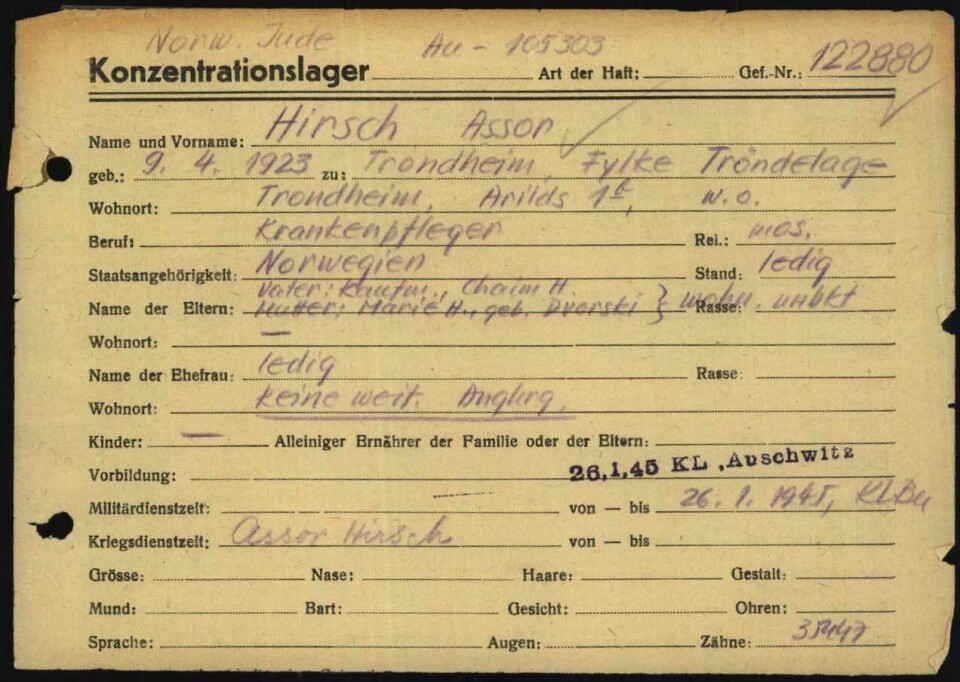 Norw. Jude Au - 105303
Konzentrationslager Art der Haft: Gef.-Nr.: 122880
Name und Vorname: Hirsch Assor
geb.: 9. 4. 1923 zu: Trondheim, Fylke Tröndelage
Wohnort: Trondheim, Arilds w.o.
Beruf: Krankenpfleger Rel.: mos.
Staatsangehörigkeit: Norwegien Stand: ledig
Vater: Kaufm., Chaim H.
Name der Eltern: Mutter: Marie H., geb. Dvorski } wohn. unbkt Rasse:
Wohnort: —
Name der Ehefrau: ledig Rasse:
Wohnort: Keine weit. Anghrg.
Kinder: — Alleiniger Ernährer der Familie oder der Eltern:
Vorbildung: 26.1.45 KL. Auschwitz
Militärdienstzeit: von — bis 26. 1. 1945, KLBu
Kriegsdienstzeit: Assor Hirsch von — bis
Grösse: Nase: Haare: Gestalt:
Mund: Bart: Gesicht: Ohren:
Sprache: Augen: Zähne: 35447